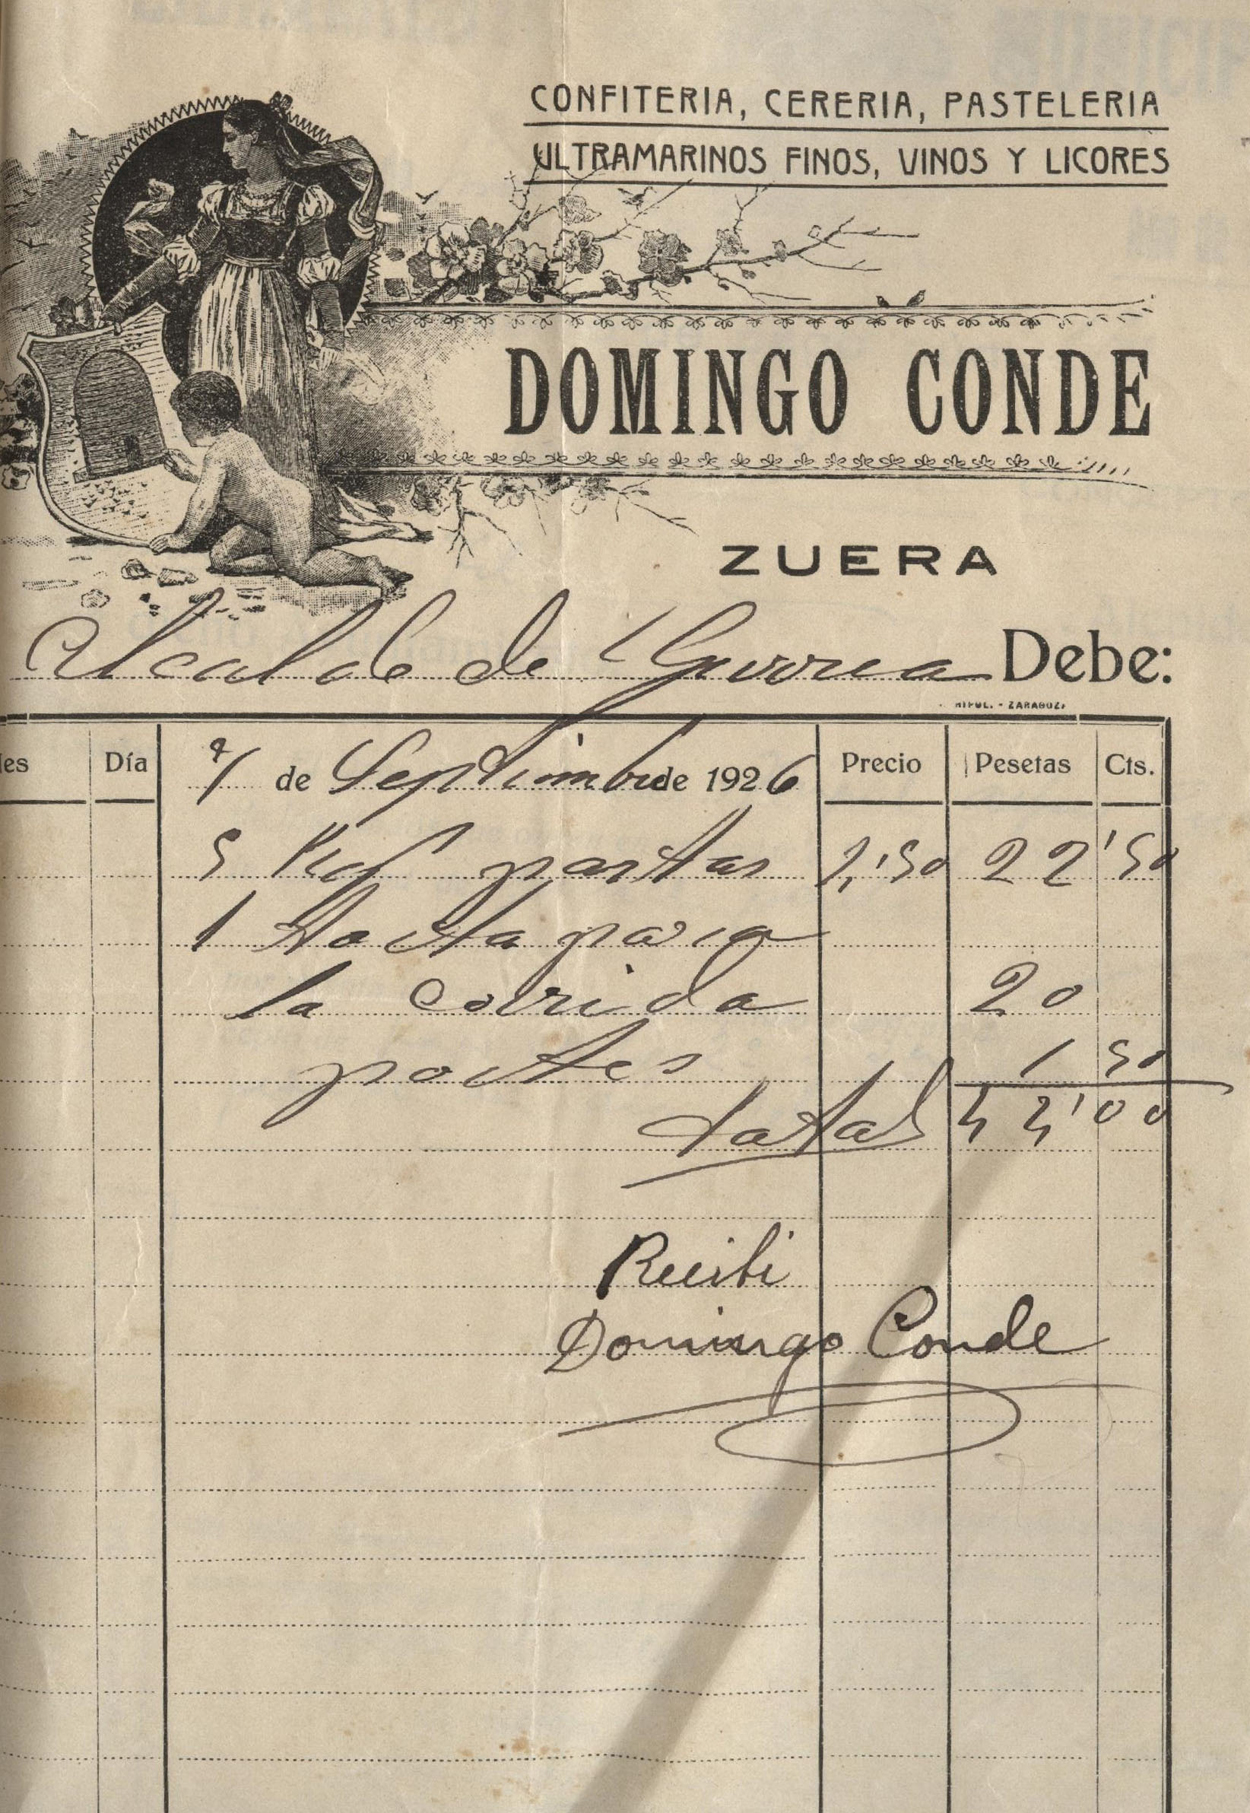 CONFITERIA, CERERIA, PASTELERIA
ULTRAMARINOS FINOS, VINOS Y LICORES
DOMINGO CONDE
ZUERA
Alcalde de Gurrea Debe:
ZARAGOZA
Día de Septiembre de 1926 Precio Pesetas Cts.
5 Kgs pastas 4'50 22'50
1 Torta para
la corrida 20
portes 1 50
total 44'00
Recibi
Domingo Conde